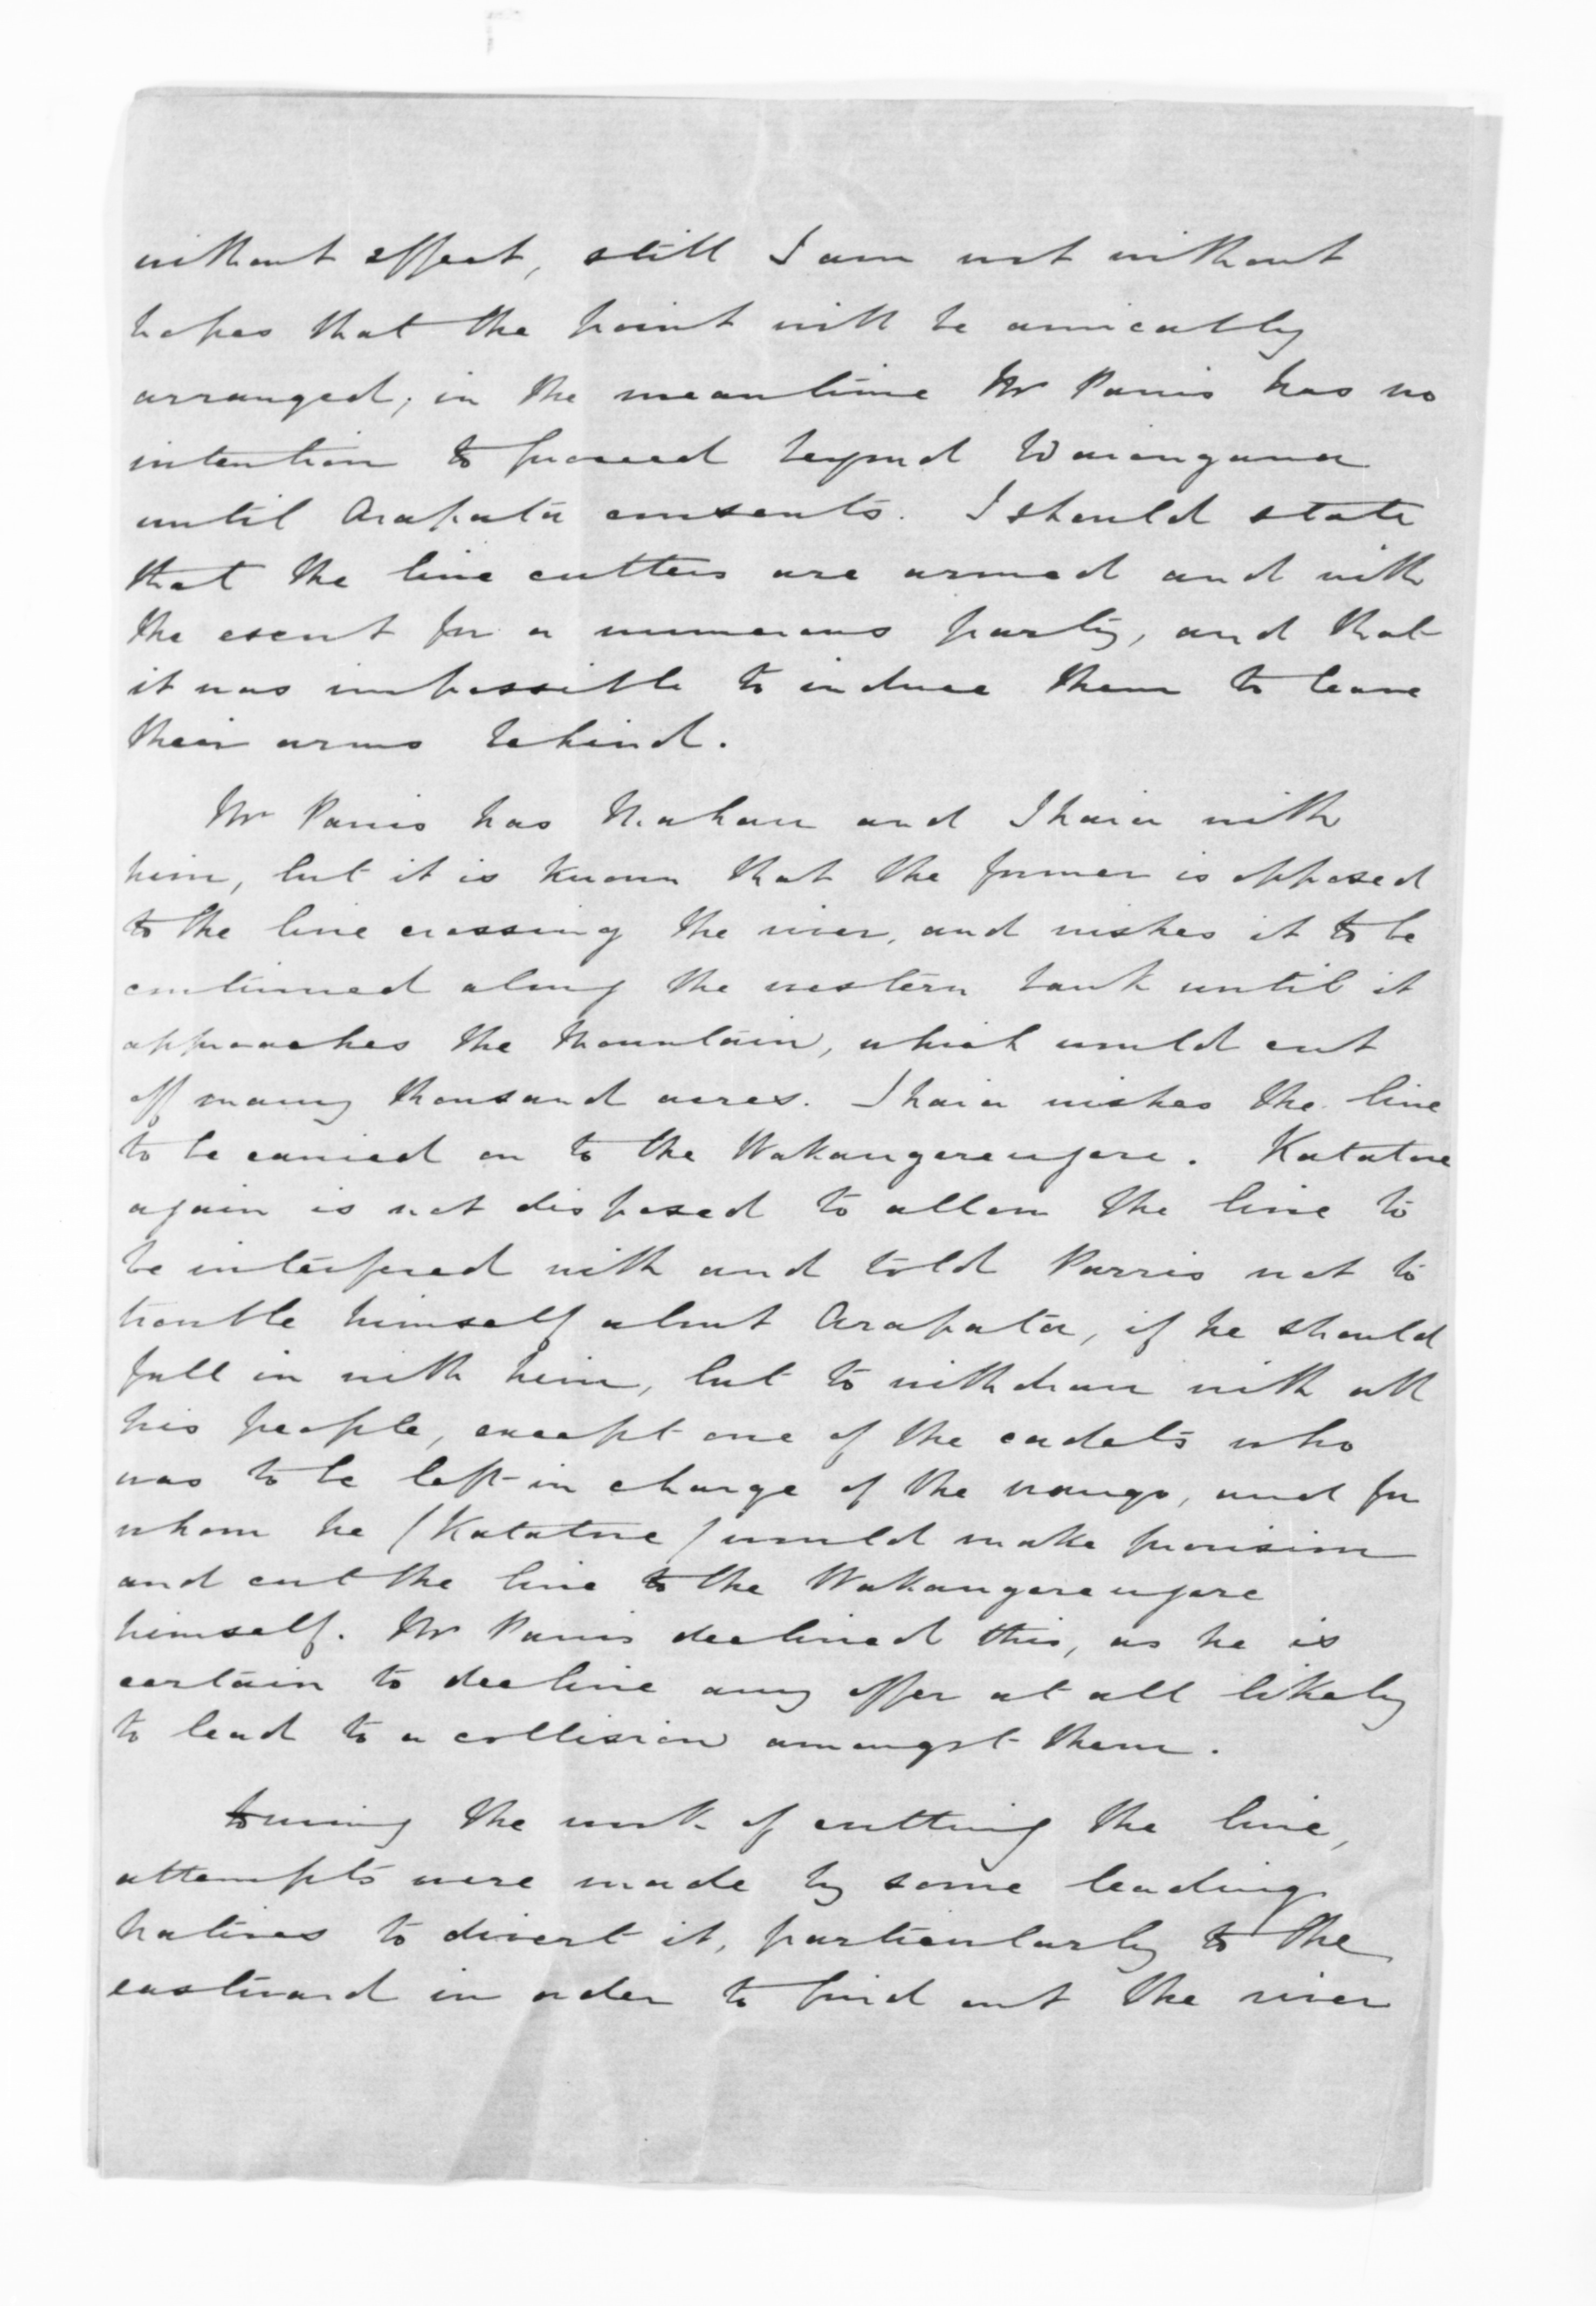 without effect, still I am not without
hopes that the point will be amicably
arranged; in the meantime Mr Parris has no
intention to proceed beyond Waiongana
until Arapata consents. I should state
that the line cutters are armed and with
the escort for a numerous party, and that
it was impossible to induce them to leave
their arms behind.
Mr Parris has Mahau and Ihaia with
him, but it is known that the former is opposed
to the line crossing the river, and wishes it to be
continued along the western bank until it
approaches the Mountain, which would cut
off many thousand acres. Ihaia wishes the line
to be carried on to the Wakangerengere. Katatore
again is not disposed to allow the line to
be interfered with and told Parris not to
trouble himself about Arapata, if he should
fall in with him, but to withdraw with all
his people, except one of the cadets who
was to be left in charge of the , and for
whom he (Katatore) would make provision
and cut the line to the Wakangerengere
himself. Mr Parris declined this, as he is
certain to decline any offer at all likely
to lead to a collision amongst them.
During the work of cutting the line,
attempts were made by some leading
Natives to divert it, particularly to the
eastward in order to find out the river